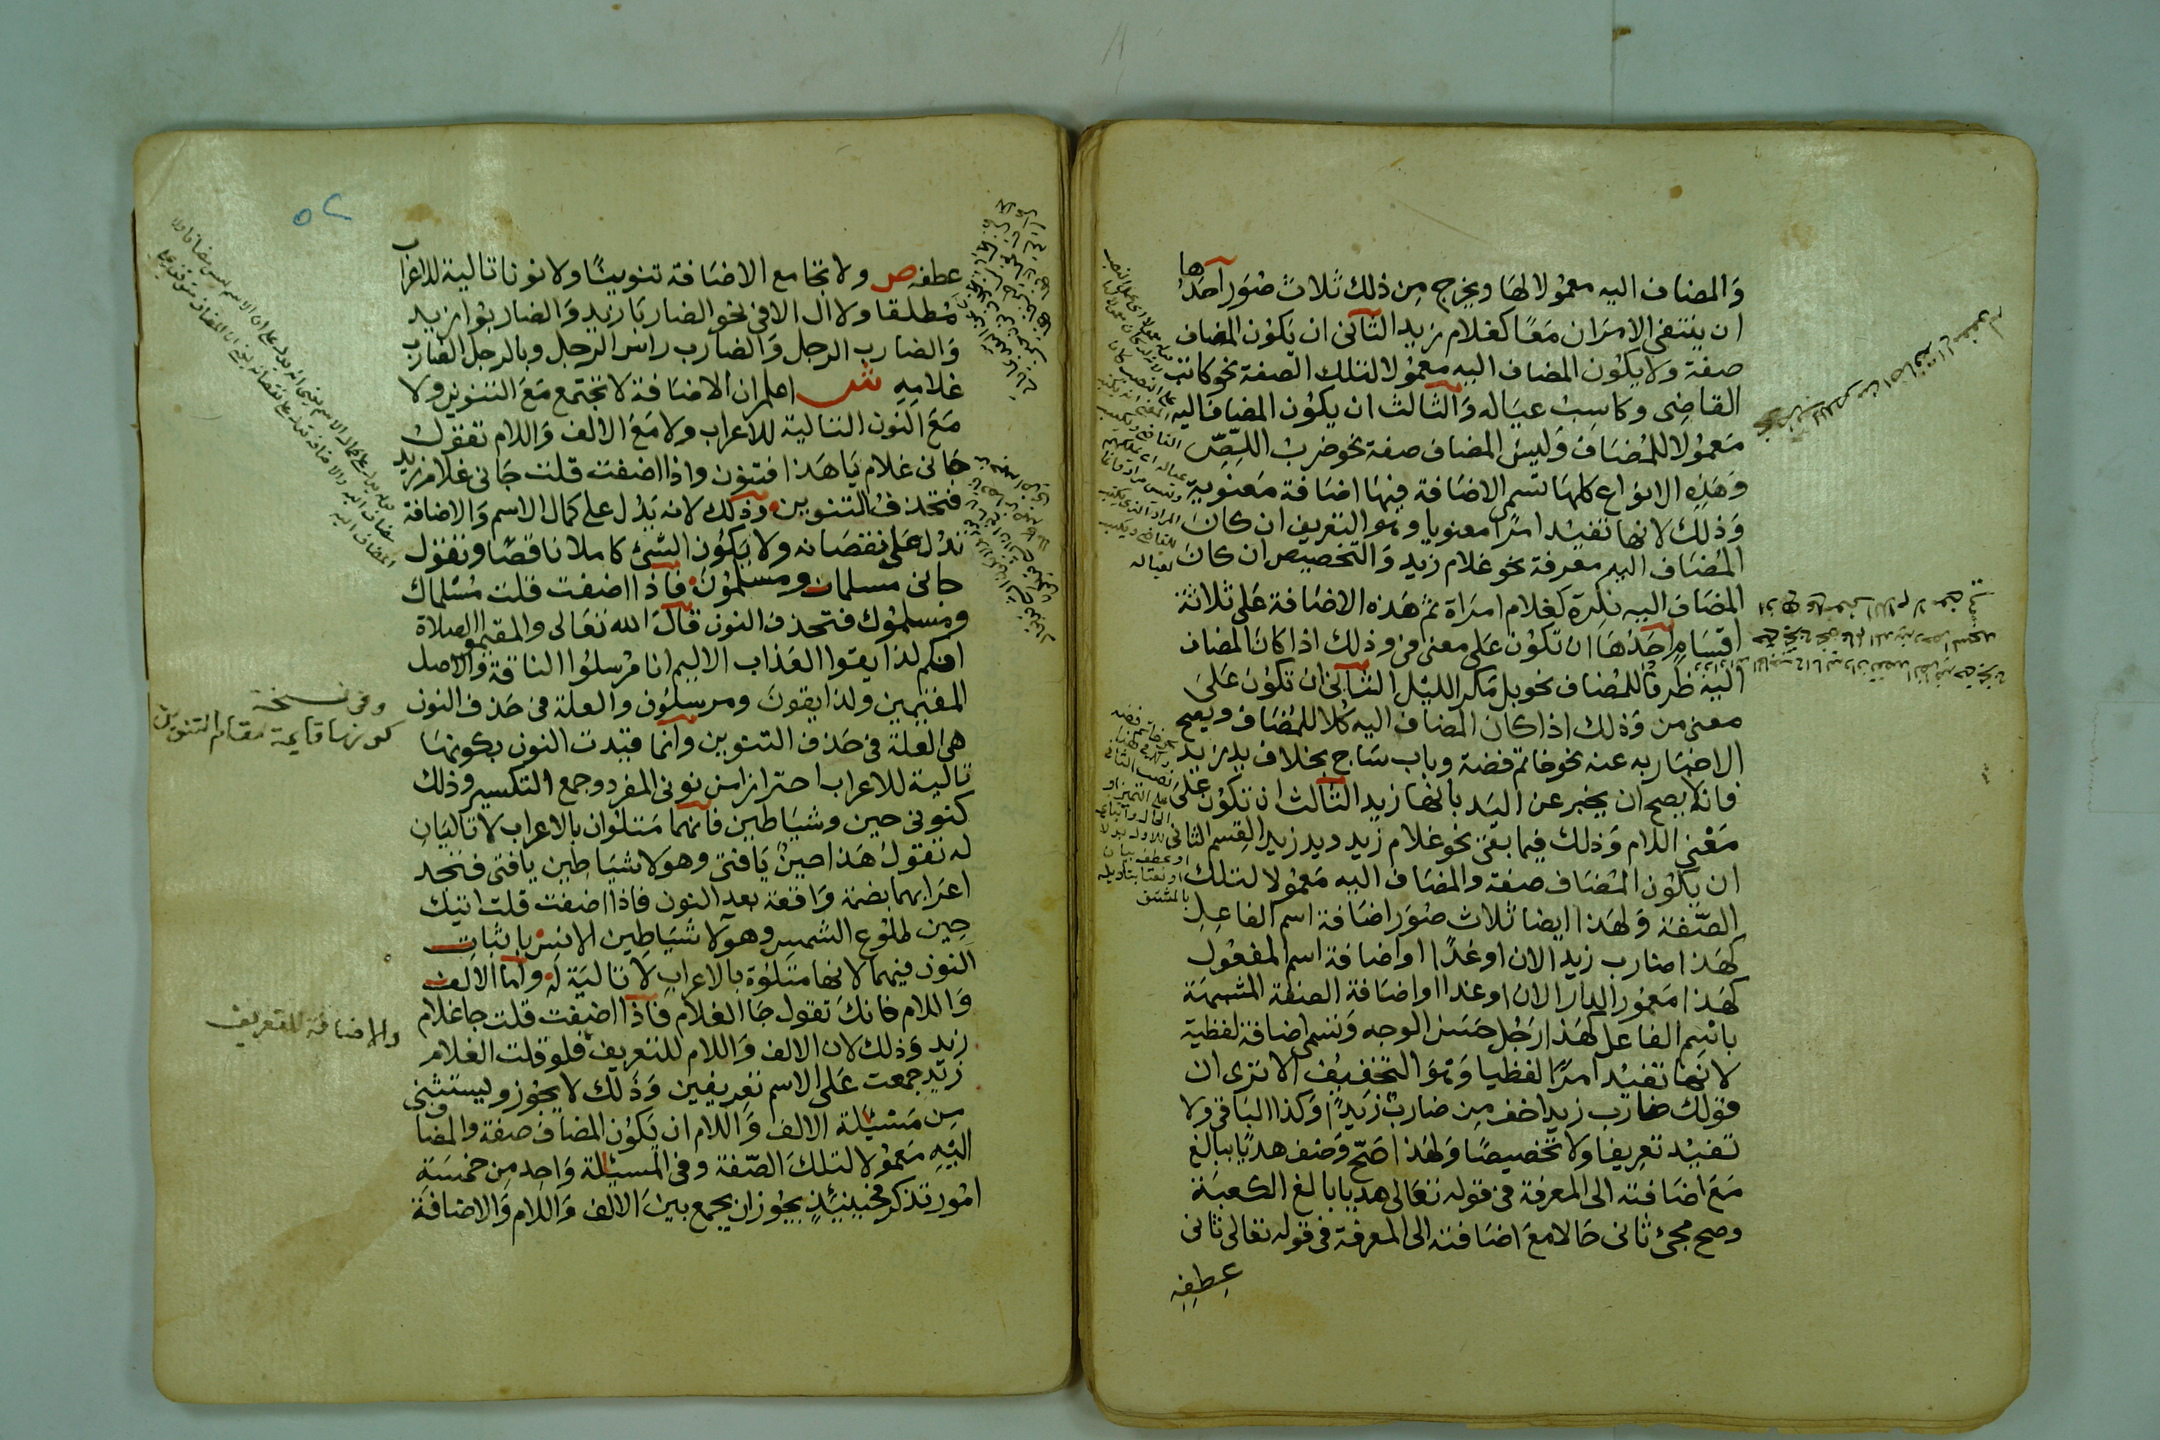 والمضاف اليه معمولا لها ويخرج من ذلك ثلاث صور احدها
ان ينتفى الامران معا كغلام زيد الثانى ان يكون المضاف
صفة ولا يكون المضاف اليه معمولا لتلك الصفة نحو كاتب
القاضى وكاسب عياله والثالث ان يكون المضاف اليه
معمولا للمضاف وليس المضاف صفة نحو ضرب اللص
وهذه الانواع كلها تسمى الاضافة فيها اضافة معنوية
وذلك لانها تفيد امرا معنويا وهو التعريف ان كان
المضاف اليه معرفة نحو غلام زيد والتخصيص ان كان
المضاف اليه نكرة كغلام امراة ثم هذه الاضافة على ثلاثة
اقسام احدها ان تكون على معنى فى وذلك اذا كان المضاف
اليه ظرفا للمضاف نحو بل مكر الليل الثانى ان تكون على
معنى من وذلك اذا كان المضاف اليه كلا للمضاف ويصح
الاخبار به عنه نحو خاتم فضة وباب ساج بخلاف يد زيد
فانه لا يصح ان يخبر عن اليد بانها زيد الثالث ان تكون على
معنى اللام وذلك فيما بقى نحو غلام زيد ويد زيد القسم الثانى
ان يكون المضاف صفة والمضاف اليه معمولا لتلك
الصفة ولهذا ايضا ثلاث صور اضافة اسم الفاعل
كهذا ضارب زيد الان او غدا او اضافة اسم المفعول
كهذا معمور الدار الان او غدا او اضافة الصفة المشبهة
باسم الفاعل كهذا رجل حسن الوجه وتسمى اضافة لفظية
لانها تفيد امرا لفظيا وهو التخفيف الا ترى ان
قولك ضارب زيد اخف من ضارب زيدا وكذا الباقى ولا
تفيد تعريفا ولا تخصيصا ولهذا صح وصف هديا ببالغ
مع اضافته الى المعرفة فى قوله تعالى هديا بالغ الكعبة
وصح مجئ ثانى حالا مع اضافته الى المعرفة فى قوله تعالى ثانى
عطفه
٥٢
عطفه ص ولا تجامع الاضافة تنوينا ولا نونا تالية للاعراب
مطلقا ولا ال الا فى نحو الضاربا زيد والضاربوا زيد
والضارب الرجل والضارب راس الرجل وبالرجل الضارب
غلامه ش اعلم ان الاضافة لا تجتمع مع التنوين ولا
مع النون التالية للاعراب ولا مع الالف واللام تقول
جانى غلام يا هذا فتنون واذا اضفت قلت جانى غلام زيد
فتحذف التنوين وذلك لانه يدل على كمال الاسم والاضافة
تدل على نقصانه ولا يكون الشئ كاملا ناقصا وتقول
جانى مسلمان ومسلمون فاذا اضفت قلت مسلماك
ومسلموك فتحذف النون قال الله تعالى والمقيمى الصلاة
انكم لذايقوا العذاب الاليم انا مرسلوا الناقة والاصل
المقيمين ولذايقون ومرسلون والعلة فى حذف النون
هى العلة فى حذف التنوين وانما قيدت النون بكونها
تالية للاعراب احترازا من نونى المفرد وجمع التكسير وذلك
كنونى حين وشياطين فانهما متلوان بالاعراب لا تاليان
له تقول هذا حين يا فتى وهولا شياطين يا فتى فتجد
اعرابهما بضمة واقعة بعد النون فاذا اضفت قلت اتيك
حين طلوع الشمس وهولا شياطين الانس باثبات
النون فيهما لانها متلوة بالاعراب لا تالية له واما الالف
واللام فانك تقول جا الغلام فاذا اضفت قلت جا غلام
زيد وذلك لان الالف واللام للتعريف فلو قلت الغلام
زيد جمعت على الاسم تعريفين وذلك لا يجوز ويستثنى
من مسئلة الالف واللام ان يكون المضاف صفة والمضاف
اليه معمولا لتلك الصفة وفى المسئلة واحد من خمسة
امور تذكر فحينئذ يجوز ان يجمع بين الالف واللام والاضافة
وفى نسخة
كونها قايمة مقام التنوين
والاضافة للتعريف